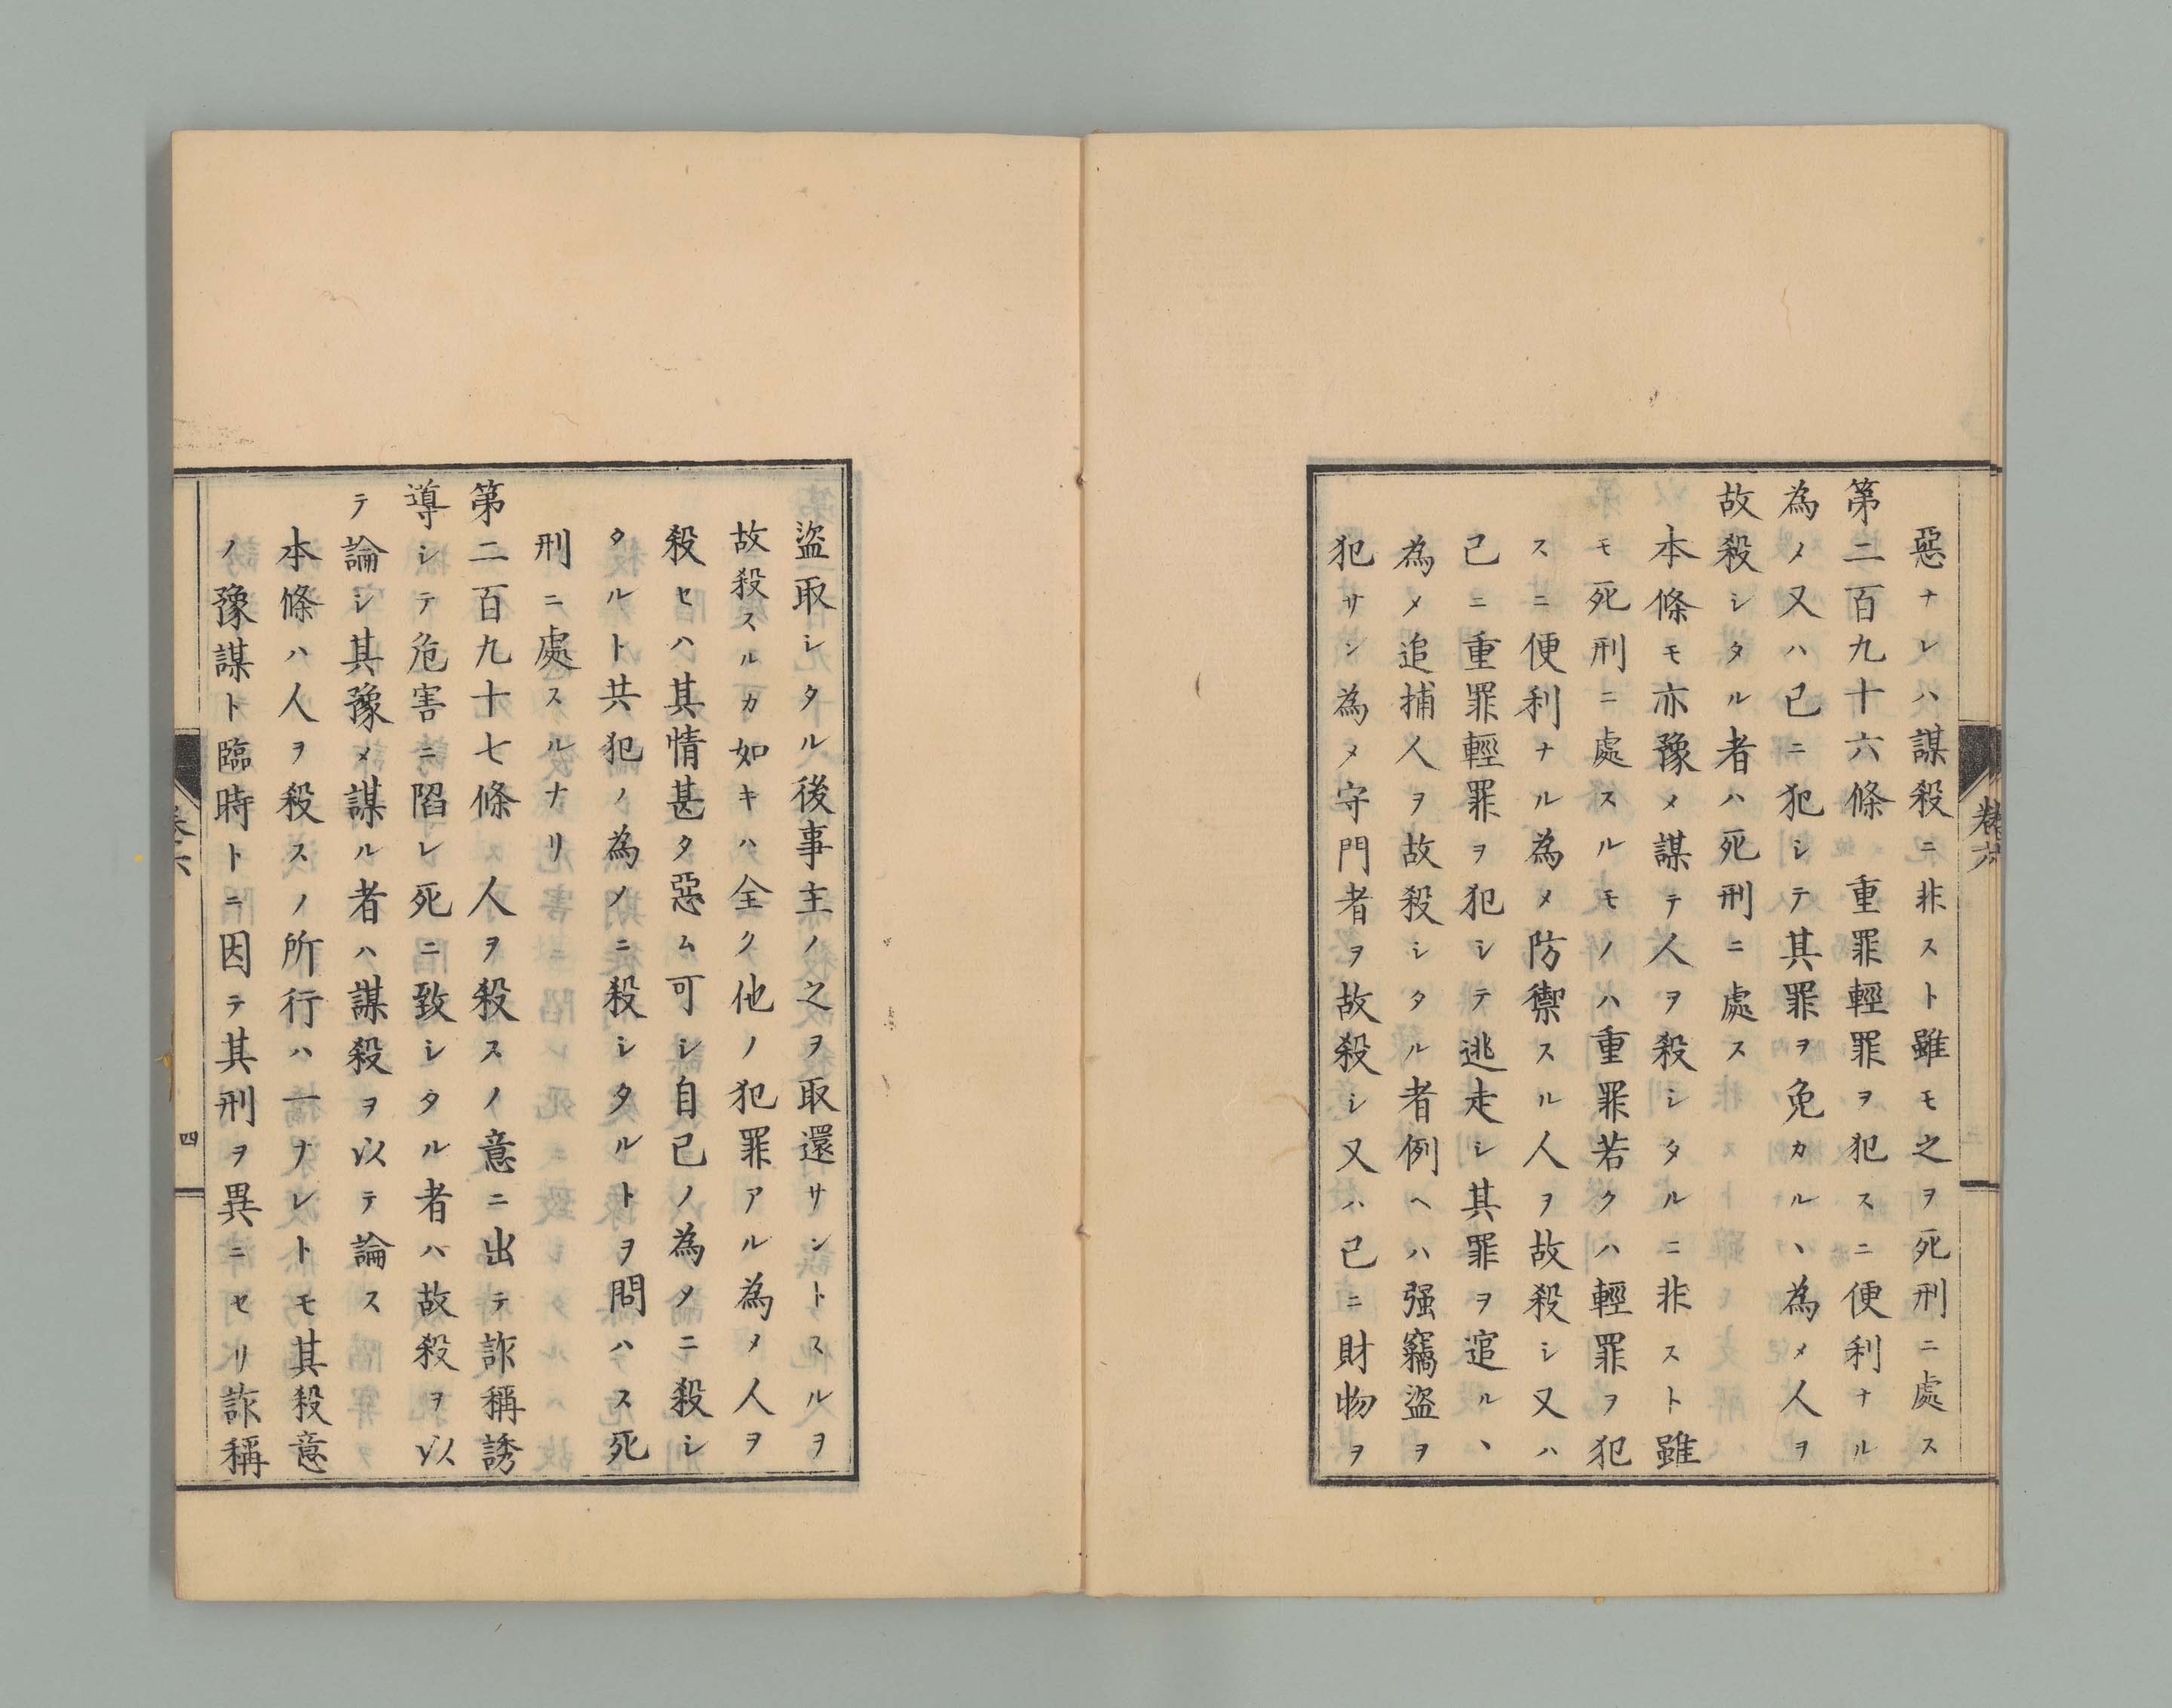 惡ナレハ謀殺ニ非スト雖モ之ヲ死刑ニ處ス
第二百九十六條 重罪輕罪ヲ犯スニ便利ナル
為メ又ハ已ニ犯シテ其罪ヲ免カルヽ為メ人ヲ
故殺シタル者ハ死刑ニ處ス
本條モ亦豫メ謀テ人ヲ殺シタルニ非スト雖
モ死刑ニ處スルモノハ重罪若クハ輕罪ヲ犯
スニ便利ナル為メ防禦スル人ヲ故殺シ又ハ
已ニ重罪輕罪ヲ犯シテ逃走シ其罪ヲ逭ルヽ
為メ追捕人ヲ故殺シタル者例ヘハ强竊盜ヲ
犯サン為メ守門者ヲ故殺シ又ハ已ニ財物ヲ
卷六
盜取シタル後事主ノ之ヲ取還サントスルヲ
故殺スルカ如キハ全ク他ノ犯罪アル為メ人ヲ
殺セハ其情甚タ惡ム可シ自已ノ為タニ殺シ
タルト共犯ノ為メニ殺シタルトヲ問ハス死
刑ニ處スルナリ
第二百九十七條 人ヲ殺スノ意ニ出テ詐稱誘
導シテ危害ニ陷レ死ニ致シタル者ハ故殺ヲ以
テ論シ其豫メ謀ル者ハ謀殺ヲ以テ論ス
本條ハ人ヲ殺スノ所行ハ一ナレトモ其殺意
ノ豫謀ト臨時トニ因テ其刑ヲ異ニセリ詐稱
卷六
四